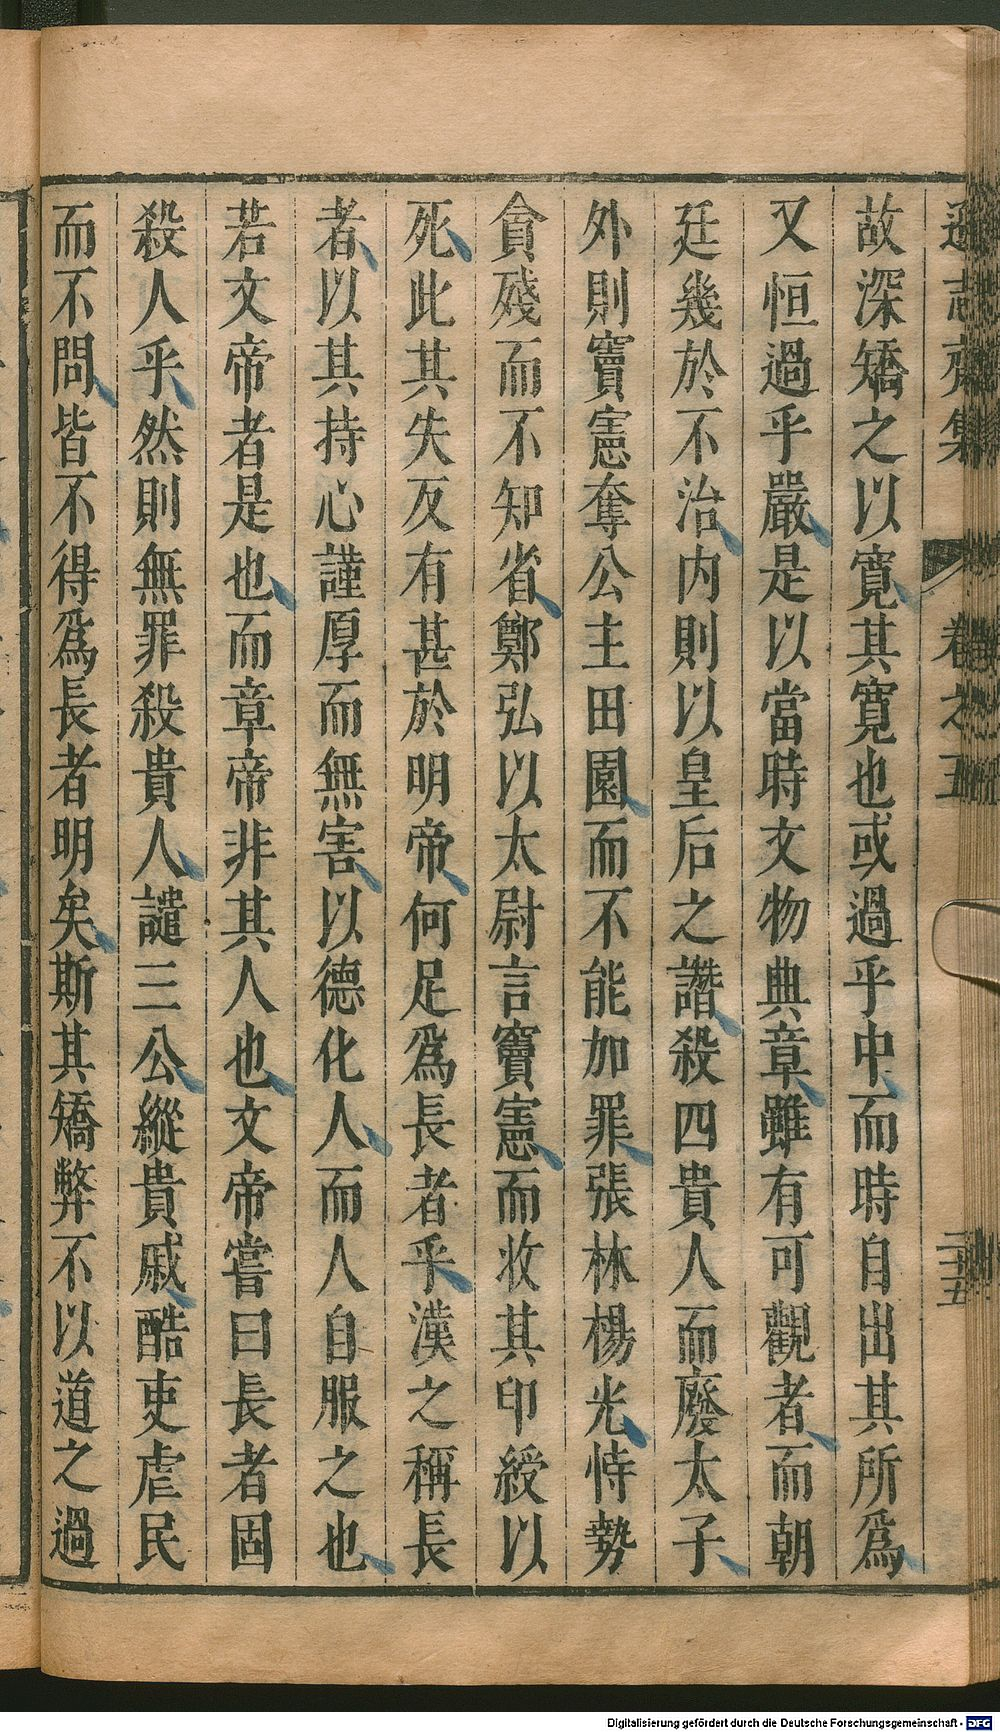 遜志齋集 卷之五 二十五
故深矯之以寛其寛也或過乎中而時自出其所爲
又恒過乎嚴是以當時文物典章雖有可觀者而朝
廷幾於不治內則以皇后之譖殺四貴人而廢太子
外則竇憲奪公主田園而不能加罪張林楊光恃勢
貪殘而不知省鄭弘以太尉言竇憲而收其印綬以
死此其失反有甚於明帝何足爲長者乎漢之稱長
者以其持心謹厚而無害以德化人而人自服之也
若文帝者是也而章帝非其人也文帝嘗曰長者固
殺人乎然則無罪殺貴人譴三公縱貴戚酷吏虐民
而不問皆不得爲長者明矣斯其矯弊不以道之過
Digitalisierung gefördert durch die Deutsche Forschungsgemeinschaft - DFG